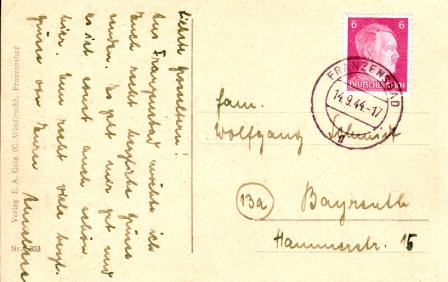 Liebste Großeltern!
Aus Franzensbad möchte ich
Euch recht herzliche Grüße
senden. Es geht mir gut und
es ist sonst auch schön
hier. Nun recht viele
Grüße von Eurem
Verlag E. A. Götz (G. Windrach), Franzensbad
Nr. 203
6 6
DEUTSCHES REICH
FRANZENSBAD
14.9.44-17
Fam.
Wolfgang Schmidt
13a Bayreuth
Hammerstr. 15